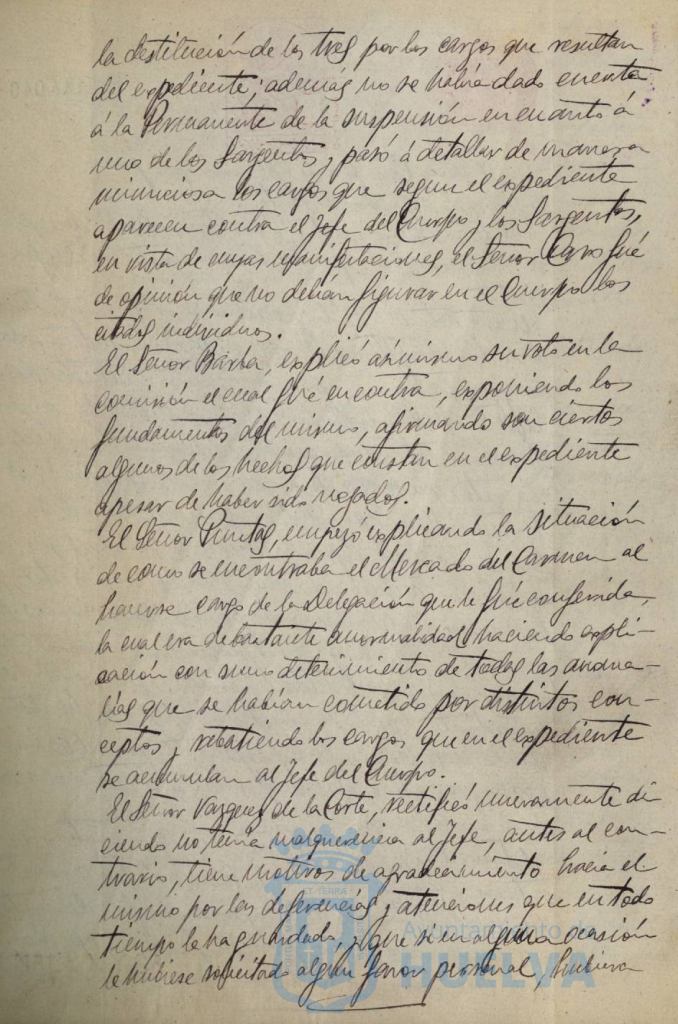 la destitución de los tres por los cargos que resultan
del expediente; además no se había dado cuenta
á la Permanente de la suspensión en cuanto á
uno de los Sargentos y pasó á detallar de manera
minuciosa los cargos que segun el expediente
aparecen contra el Jefe del Cuerpo y los Sargentos,
en vista de cuyas manifestaciones, el Señor Caro fué
de opinión que no debían figurar en el Cuerpo los
citados individuos.
El Señor Barba, explicó asimismo su voto en la
comisión el cual fué en contra, exponiendo los
fundamentos del mismo, afirmando son ciertos
algunos de los hechos que constan en el expediente
apesar de haber sido negados.
El Señor Puntas, empezó explicando la situación
de como se encontraba el Mercado del Carmen al
hacerse cargo de la Delegación que le fué conferida,
la cual era de bastante anormalidad haciendo expli-
cación con sumo detenimiento de todas las anoma-
lías que se habían cometido por distintos con-
ceptos y rebatiendo los cargos que en el expediente
se acumulan al Jefe del Cuerpo.
El Señor Vazquez de la Corte, rectificó nuevamente di-
ciendo no tenía malquerencia al Jefe, antes al con-
trario, tiene motivos de agradecimiento hacia el
mismo por las deferencias y atenciones que en todo
tiempo le ha guardado, y que si en alguna ocasión
le hubiese solicitado algun favor personal, hubiera
Ayuntamiento de
HUELVA